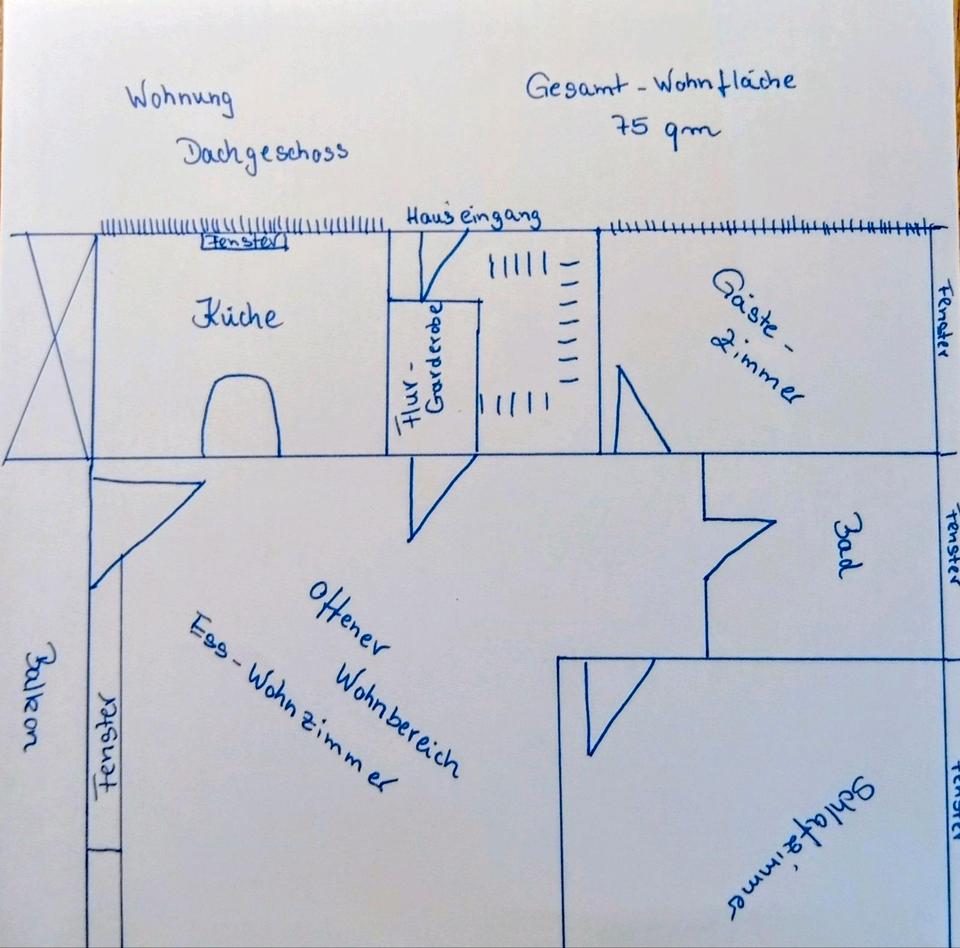 Wohnung
Dachgeschoss
Gesamt-Wohnfläche
75 qm
Hauseingang
Fenster
Küche
Flur-
Garderobe
Gäste-
zimmer
Fenster
Bad
Fenster
Offener
Wohnbereich
Ess-Wohnzimmer
Balkon
Fenster
Schlafzimmer
Fenster